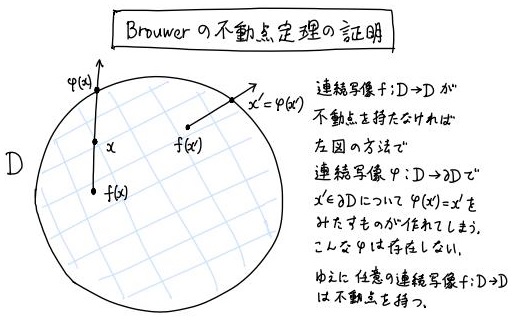 Brouwerの不動点定理の証明
φ(x)
x
f(x)
x'=φ(x')
f(x')
D
連続写像 f:D→D が
不動点を持たなければ
左図の方法で
連続写像 φ:D→∂D で
x'∈∂D について φ(x')=x' を
みたすものが作れてしまう。
こんな φ は存在しない。
ゆえに 任意の連続写像 f:D→D
は不動点を持つ。